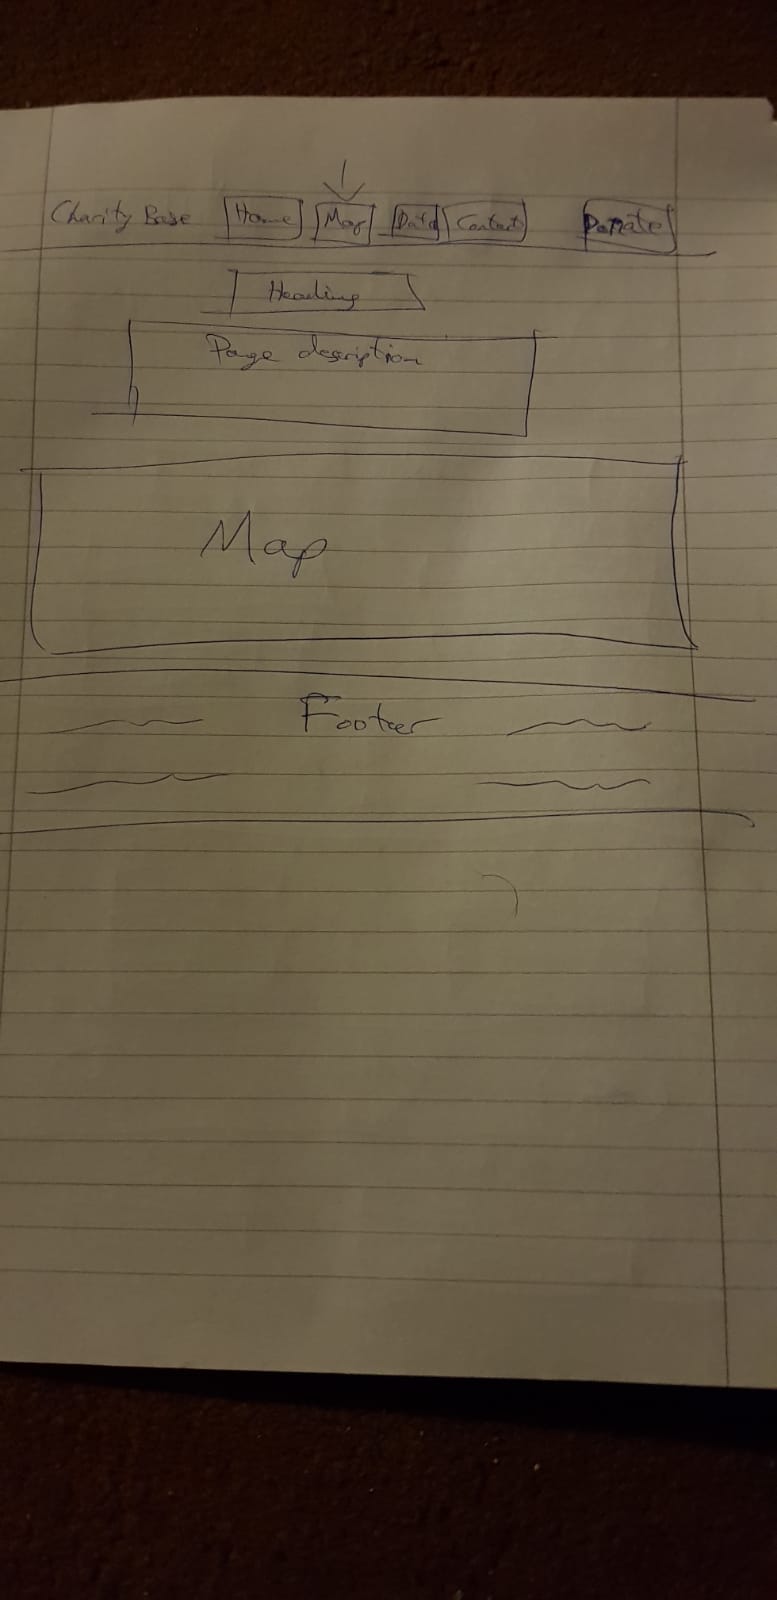 Charity Base Home Map Data Contact Donate
Heading
Page description
Map
Footer